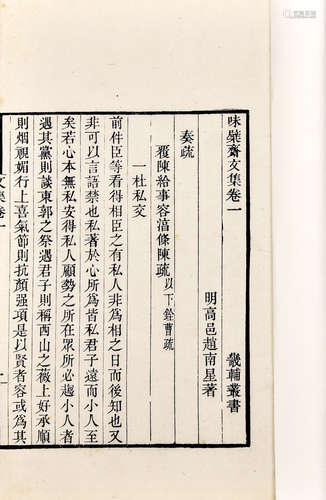 味檗齋文集卷一 畿輔叢書
明高邑趙南星著
奏疏
覆陳給事容湻條陳疏以下銓曹疏
一杜私交
前件臣等看得相臣之有私人非爲相之日而後知也又
非可以言語禁也私著於心所爲皆私君子遠而小人至
矣若心本無私安得私人顧勢之所在眾所必趨小人者
遇其黨則談東郭之祭遇君子則稱西山之薇上好承順
則烟視媚行上喜氣節則抗顏强項是以賢者容或爲其
文集卷一